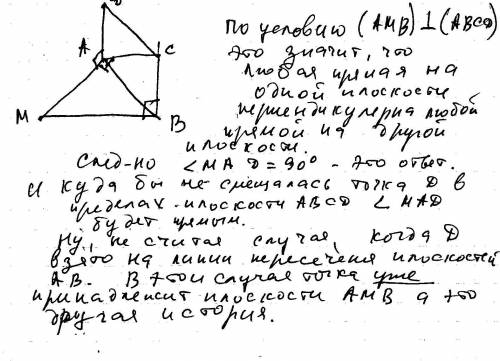 D
A
C
M
B
По условию (АМВ) ⊥ (АВСD)
Это значит, что
любая прямая на
одной плоскости
перпендикулярна любой
прямой на другой
плоскости.
След-но ∠МАD = 90° - это ответ.
И куда бы не смещалась точка D в
пределах плоскости ABCD ∠MAD
будет прямым.
Ну, не считая случая, когда D
взято на линии пересечения плоскостей
АВ. В этом случае точка уже
принадлежит плоскости АМВ а это
другая история.